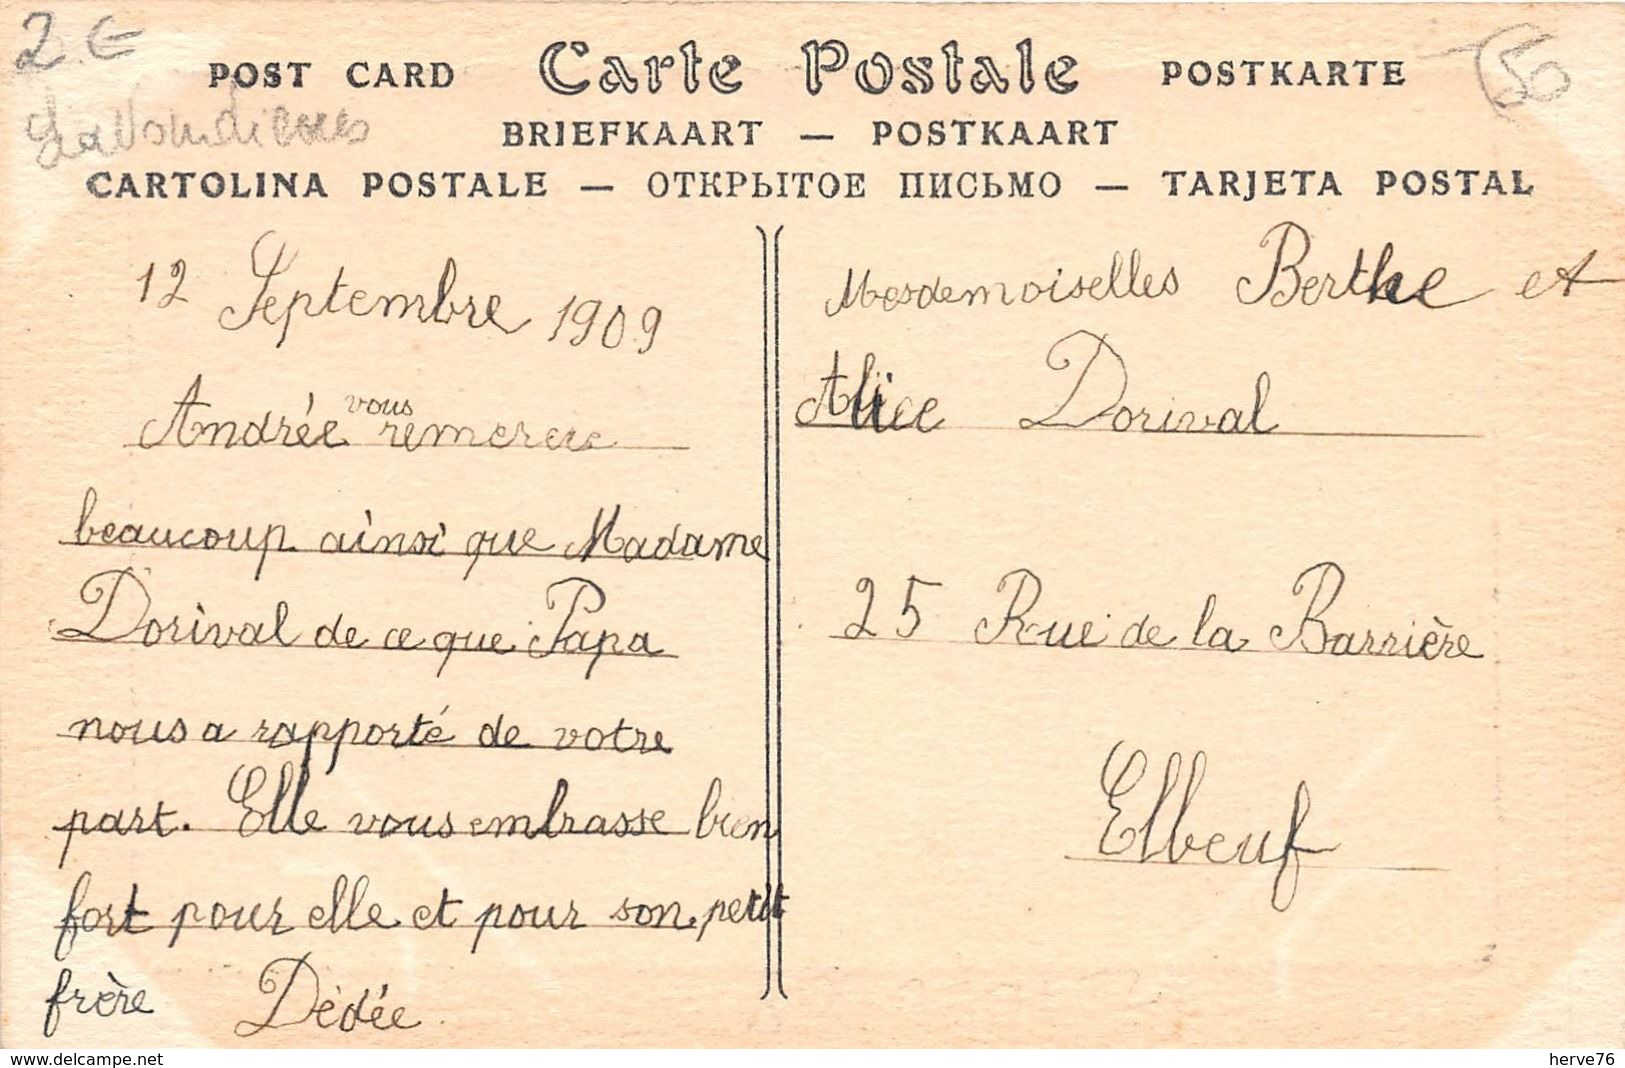 2 €
50
POST CARD Carte Postale POSTKARTE
BRIEFKAART — POSTKAART
CARTOLINA POSTALE — ОТКРЫТОЕ ПИСЬМО — TARJETA POSTAL
12 Septembre 1909
Andrée vous remercie
beaucoup ainsi que Madame
Dorival de ce que Papa
nous a rapporté de votre
part. Elle vous embrasse bien
fort pour elle et pour son petit
frère Dédée
Mesdemoiselles Berthe et
Alice Dorival
25 Rue de la Barrière
Elbeuf
www.delcampe.net
herve76